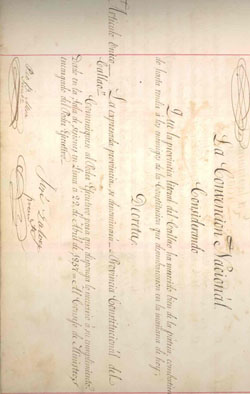 La Convencion Nacional
Considerando
Que la provincia litoral del Callao ha merecido bien de la patria, combatiendo
de tanta á los enemigos de la Constitucion que desembarcaron en la mañana de hoy;
Decreta:
Articulo único— La espresada provincia se denominará— Provincia Constitucional del
Callao.
Comuníquese al Poder Ejecutivo para que disponga lo necesario á su cumplimiento.
Dado en la Sala de sesiones en Lima á 22 de Abril de 1857— Al Consejo de Ministros,
encargado del Poder Ejecutivo.
José